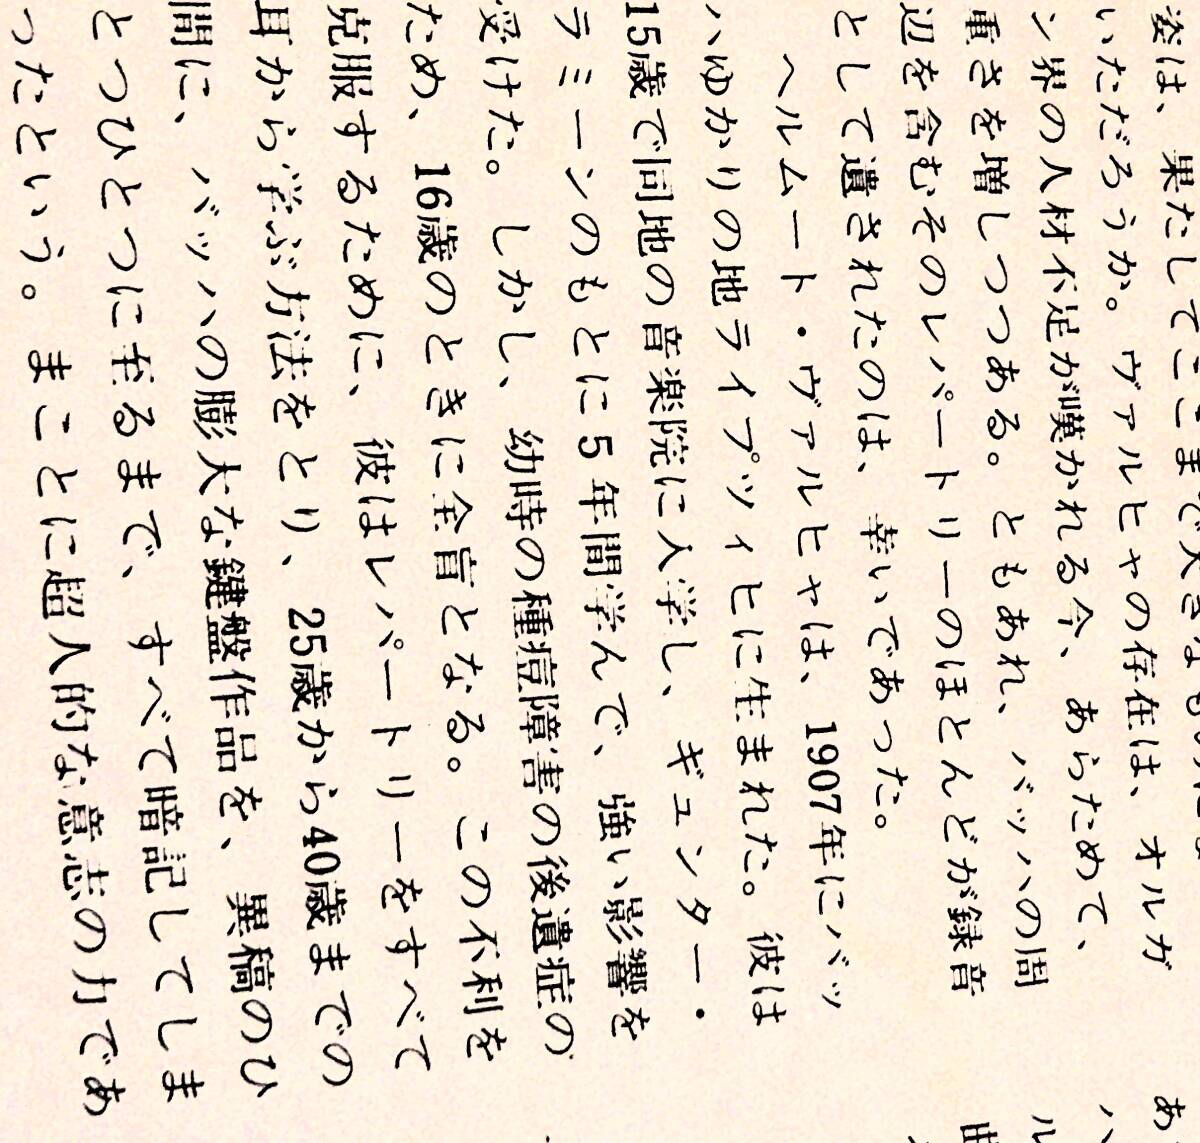 姿は、果たしてここまで大きなもの
いただろうか。ヴァルヒャの存在は、オルガ
ン界の人材不足が嘆かれる今、あらためて、
重さを増しつつある。ともあれ、バッハの周
辺を含むそのレパートリーのほとんどが録音
として遺されたのは、幸いであった。
ヘルムート・ヴァルヒャは、1907年にバッ
ハゆかりの地ライプツィヒに生まれた。彼は
15歳で同地の音楽院に入学し、ギュンター・
ラミーンのもとに5年間学んで、強い影響を
受けた。しかし、幼時の種痘障害の後遺症の
ため、16歳のときに全盲となる。この不利を
克服するために、彼はレパートリーをすべて
耳から学ぶ方法をとり、25歳から40歳までの
間に、バッハの膨大な鍵盤作品を、異稿のひ
とつひとつに至るまで、すべて暗記してしま
ったという。まことに超人的な意志の力であ
あ
ハ
ル